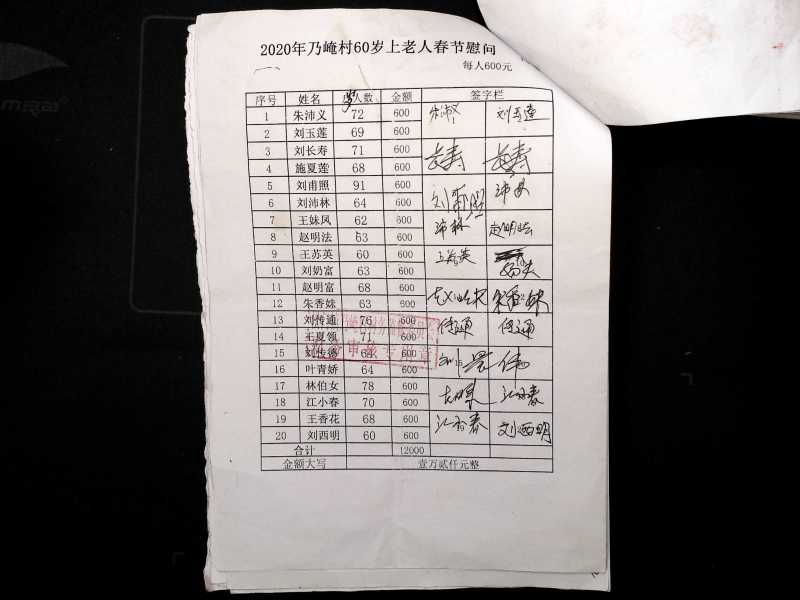 2020年乃崦村60岁上老人春节慰问
每人600元
序号 姓名 人数 金额 签字栏
1 朱沛义 72 600 朱沛义 刘玉莲
2 刘玉莲 69 600
3 刘长寿 71 600 长寿 长寿
4 施夏莲 68 600
5 刘甫照 91 600 刘甫照 沛林
6 刘沛林 64 600
7 王妹凤 62 600 沛林
8 赵明法 63 600 赵明法
9 王苏英 60 600 王苏英
10 刘奶富 63 600
11 赵明富 68 600
12 朱香妹 63 600 朱香妹
13 刘传通 76 600 传通 传通
14 王夏领 71 600
15 刘传德 64 600
16 叶青娇 64 600
17 林伯女 78 600
18 江小春 70 600 江小春
19 王香花 68 600 江小春
20 刘西明 60 600 刘西明
合计 12000
金额大写 壹万贰仟元整